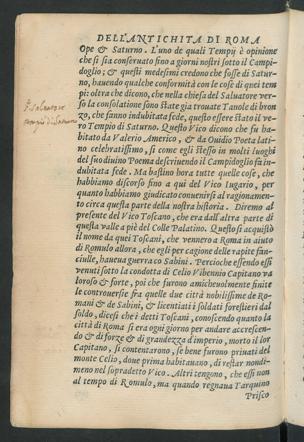 DELL'ANTICHITA DI ROMA
Ope & Saturno. L'uno de quali Tempij è opinione
che si sia conseruato fino a giorni nostri sotto il Campi-
doglio; & questi medesimi credono che fosse di Satur-
no, hauendo qualche conformità con le cose di quei tem
pi: oltra che dicono, che nella chiesa del Saluatore ver-
so la consolatione sono state gia trouate Tauole di bron
zo, che fanno indubitata fede, questo essere stato il ve-
ro Tempio di Saturno. Questo Vico dicono che fu ha-
bitato da Valerio Americo, & da Ouidio Poeta lati-
no celebratissimo, si come egli stesso in molti luoghi
del suo diuino Poema descriuendo il Campidoglio fa in-
dubitata fede. Ma bastino hora tutte quelle cose, che
habbiamo discorso fino a qui del Vico Iugario, per
quanto habbiamo giudicato conuenirsi al ragionamento
circa questa parte della nostra historia. Diremo al
presente del Vico Toscano, che era dall'altra parte di
questa valle a piè del Colle Palatino. Questo si acquistò
il nome da quei Toscani, che vennero a Roma in aiuto
di Romulo allora, che egli per cagione delle rapite fan-
ciulle, haueua guerra co Sabini. Percioche essendo essi
venuti sotto la condotta di Celio Vibennio Capitano va
loroso & forte, poi che furono amicheuolmente finite
le controuersie fra quelle due città nobilissime de Ro-
mani & de Sabini, & licentiati i soldati forestieri dal
soldo, dicesi che i detti Toscani, conoscendo quanto la
città di Roma si era ogni giorno per andare accrescen-
do & di forze & di grandezza d'imperio, morto il lor
Capitano, si contentarono, se bene furono priuati del
monte Celio, doue prima habitauano, di restar nondi-
meno nel sopradetto Vico. Altri tengono, che essi non
al tempo di Romulo, ma quando regnaua Tarquino
Prisco
S. Saluatore
tempio di Saturno